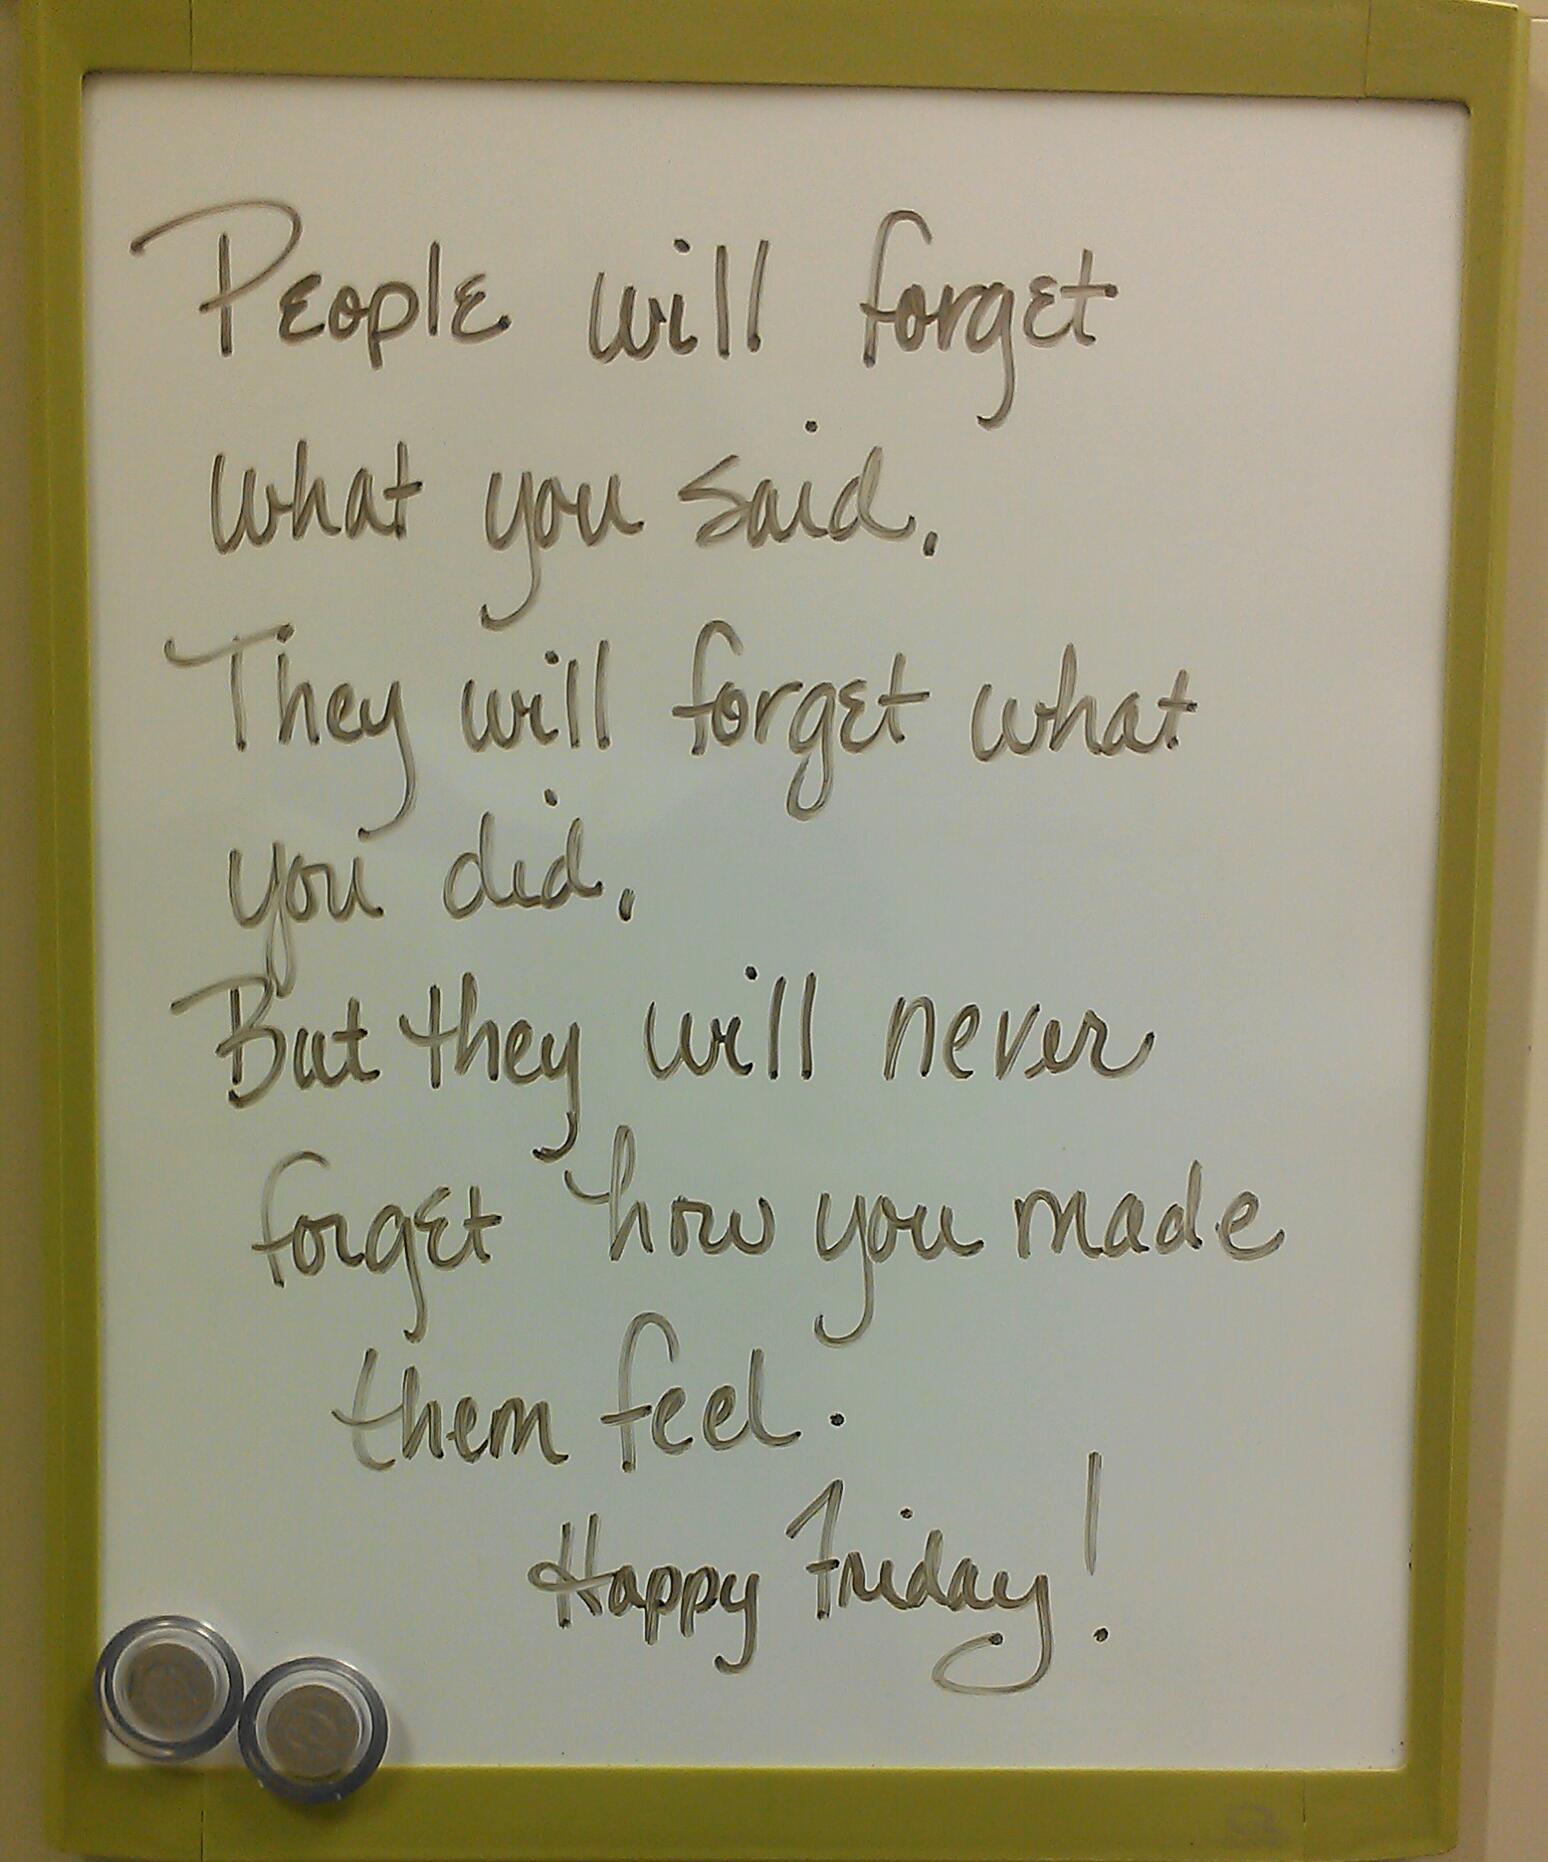 People will forget
what you said.
They will forget what
you did.
But they will never
forget how you made
them feel.
Happy Friday!